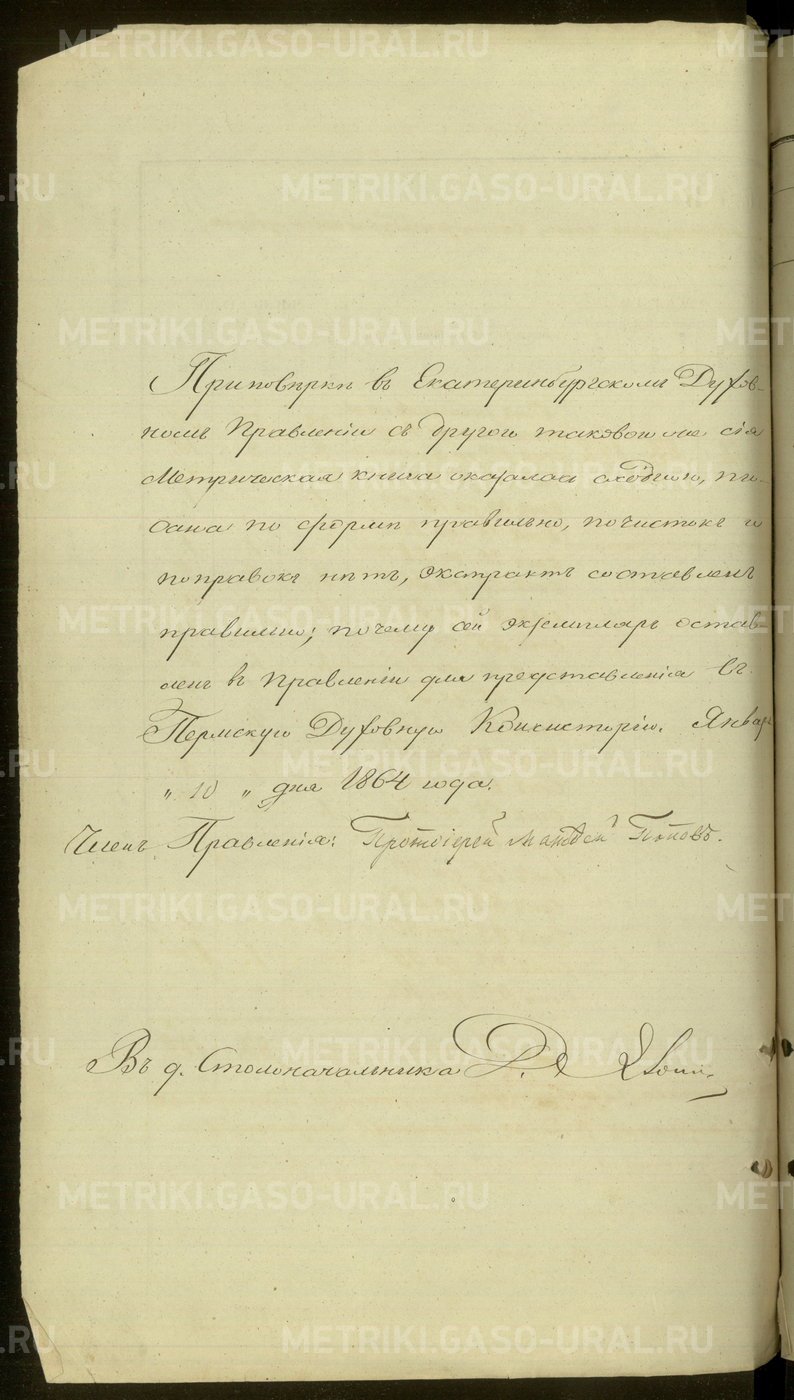 При повѣркѣ въ Екатеринбургскомъ Духов-
номъ Правленіи съ другою таковою же сія
Метрическая книга оказалась сходною, пи-
сана по формѣ правильно, почистокъ и
поправокъ нѣтъ, экстрактъ составленъ
правильно; почему сей экземпляръ остав-
ленъ въ Правленіи для представленія въ
Пермскую Духовную Консисторію. Января
„ 10 „ дня 1864 года.
Членъ Правленія: Протоіерей Матвей Поповъ.
Въ д. Столоначальника
METRIKI.GASO-URAL.RU